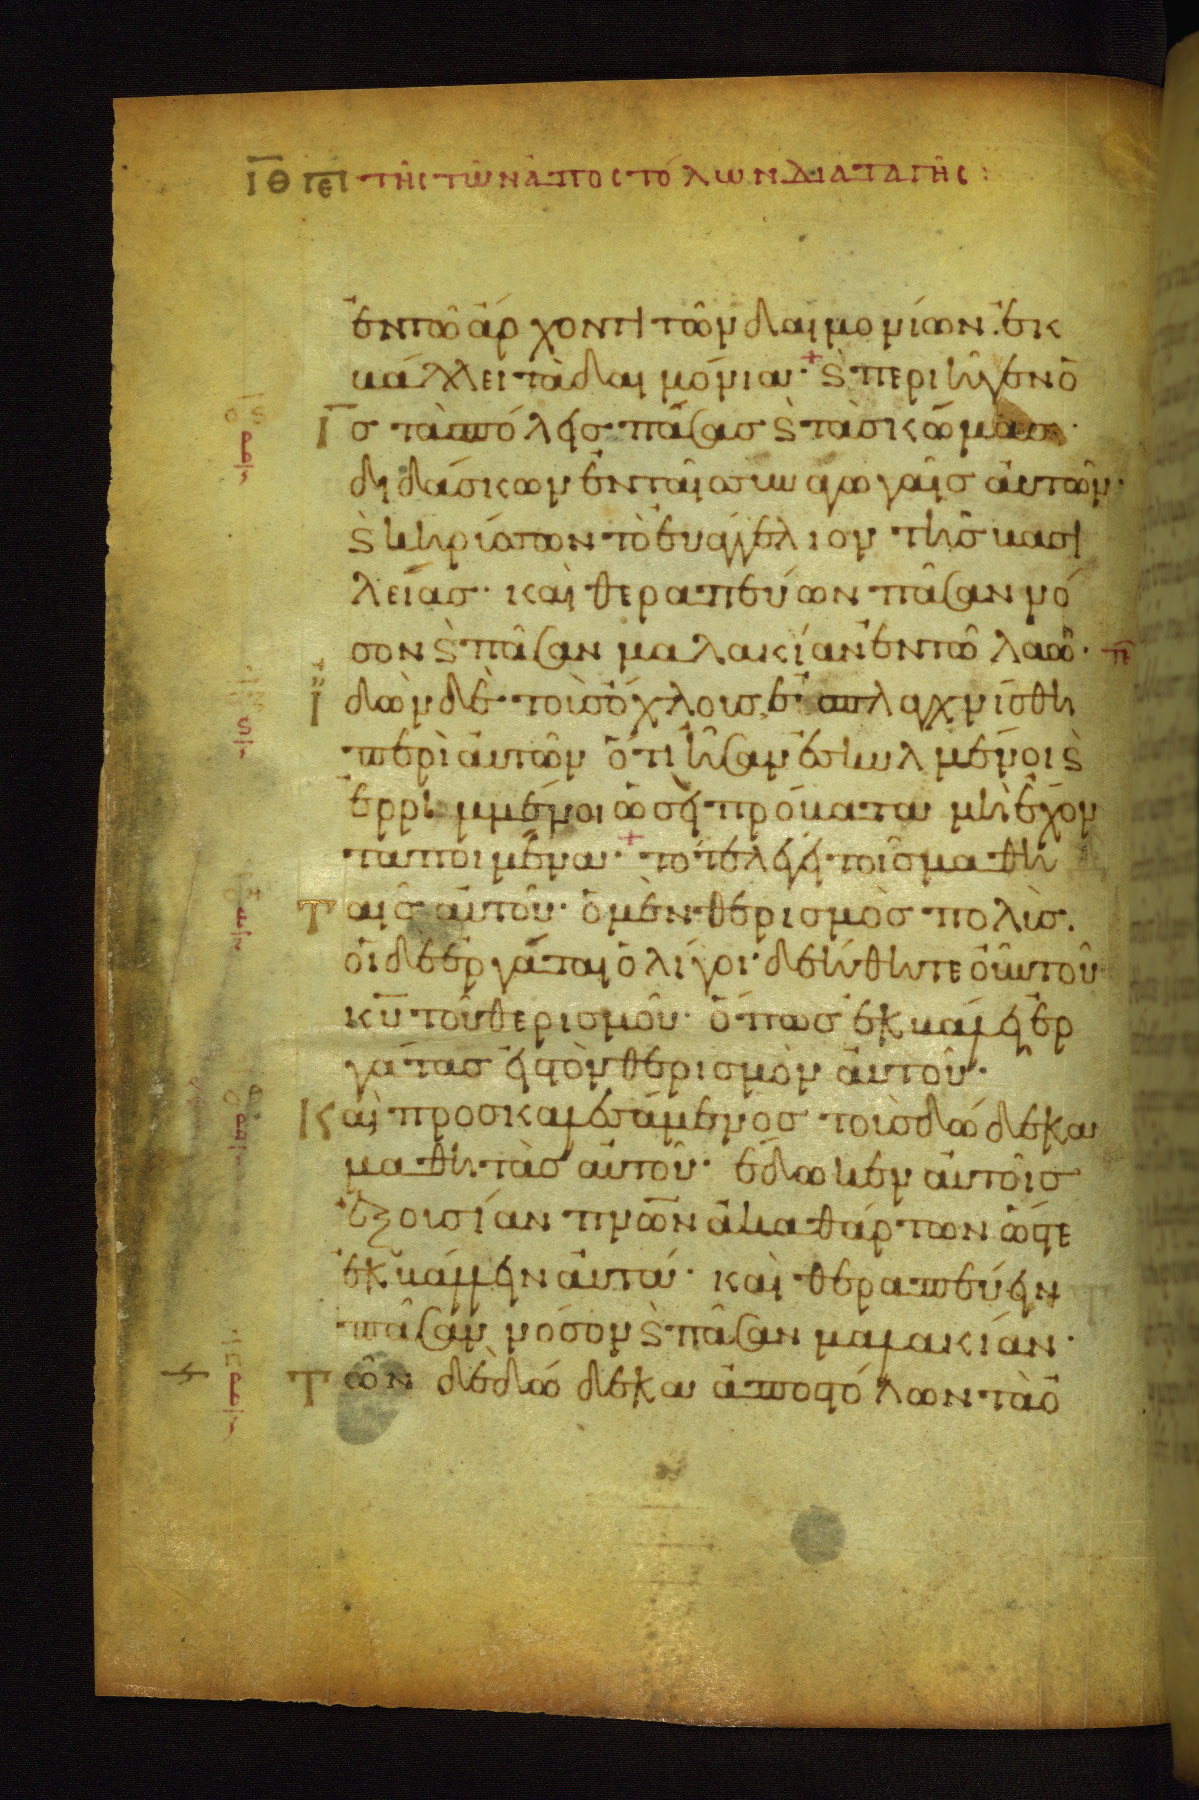 ΙΘ περὶ τῆς τῶν ἀποστόλων διαταγῆς:
ἐν τῶ ἄρχοντι τῶν δαιμονίων. ἐκ
βάλλει τὰ δαιμόνια· ϗ περιῆγεν ὁ
ις τὰς πόλεις πάσας ϗ τὰς κώμας·
διδάσκων ἐν ταῖς συναγωγαῖς αὐτῶν·
ϗ κηρύσσων τὸ εὐαγγέλιον τῆς βασι
λείας· καὶ θεραπεύων πᾶσαν νό
σον ϗ πᾶσαν μαλακίαν ἐν τῶ λαῶ·
Ἰδὼν δὲ τοὺς ὄχλους ἐσπλαχνίσθη
περὶ αὐτῶν ὅτι ἦσαν ἐσκυλμένοι ϗ
ἐρριμμένοι ὡσεὶ πρόβατα μὴ ἔχον
τα ποιμένα· τότε λέγει τοῖς μαθη
Ταῖς αὐτοῦ· ὁ μὲν θερισμὸς πολὺς.
οἱ δὲ ἐργάται ὀλίγοι· δεήθητε οὖν τοῦ
κυ τοῦ θερισμοῦ· ὅπως ἐκβάλη ἐρ
γάτας εἰς τὸν θερισμὸν αὐτοῦ·
Καὶ προσκαλεσάμενος τοὺς δώδεκα
μαθητὰς αὐτοῦ· ἔδωκεν αὐτοῖς
ἐξουσίαν πνων ἀκαθάρτων ὥστε
ἐκβάλλειν αὐτά· καὶ θεραπεύειν
πᾶσαν νόσον ϗ πᾶσαν μαλακίαν·
Τῶν δὲ δώδεκα ἀποστόλων τὰ ὀ